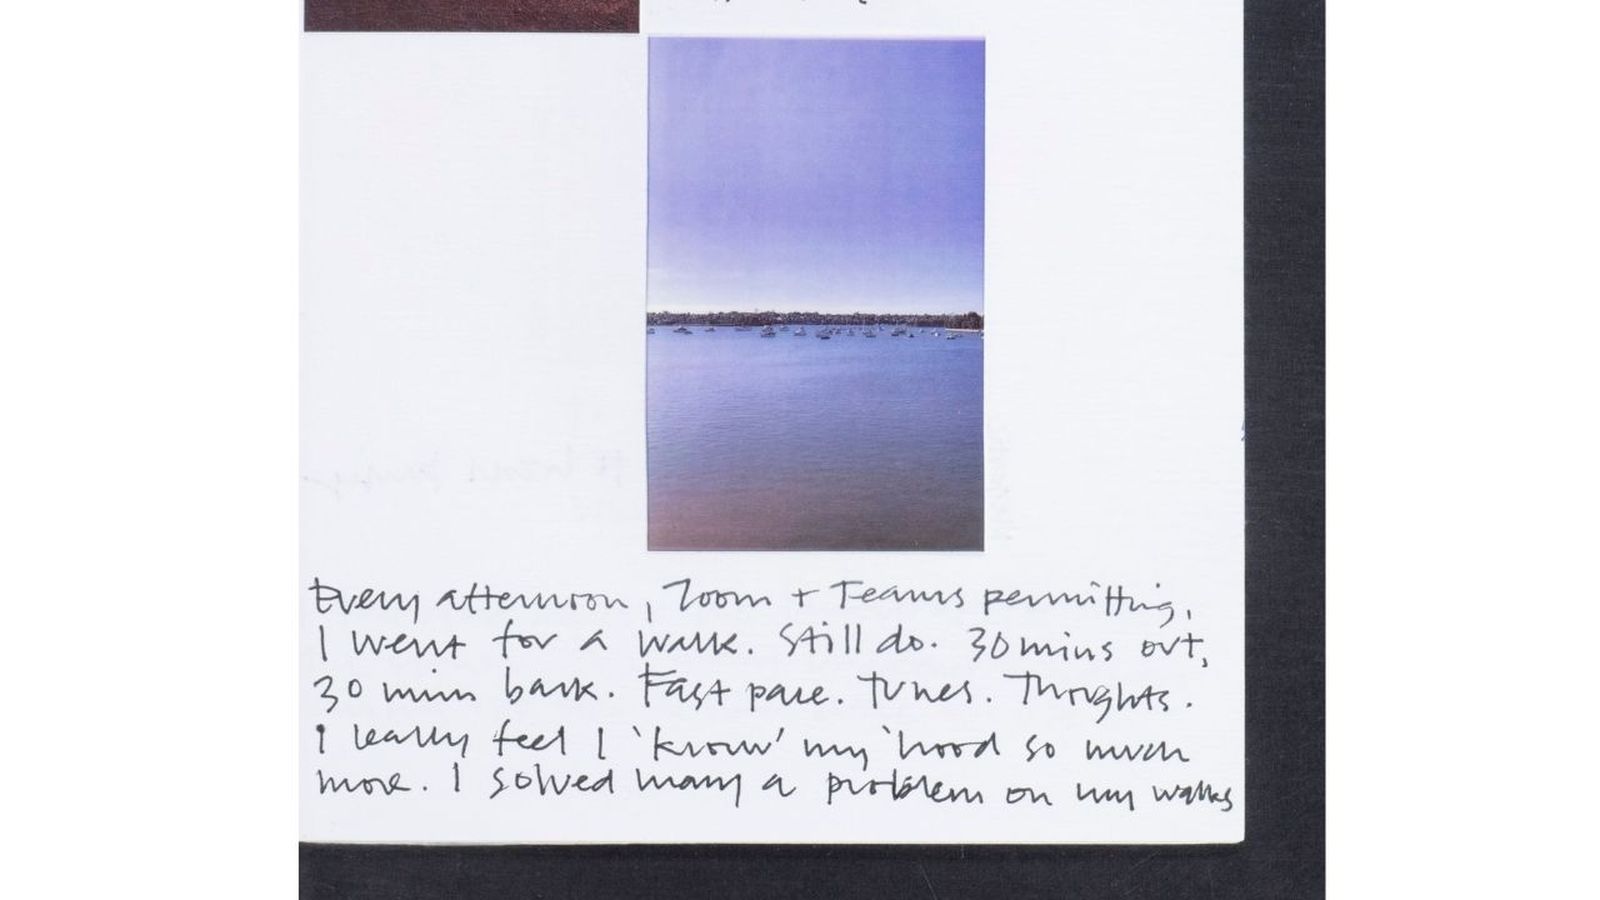 Every afternoon, Zoom + Teams permitting,
I went for a walk. Still do. 30 mins out,
30 min back. Fast pace. Tunes. Thoughts.
I really feel I 'know' my 'hood so much
more. I solved many a problem on my walks